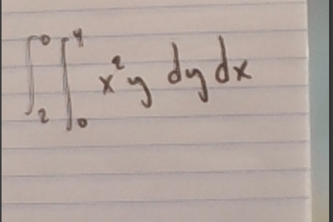 ∫₂⁰ ∫₀⁴ x²y dy dx